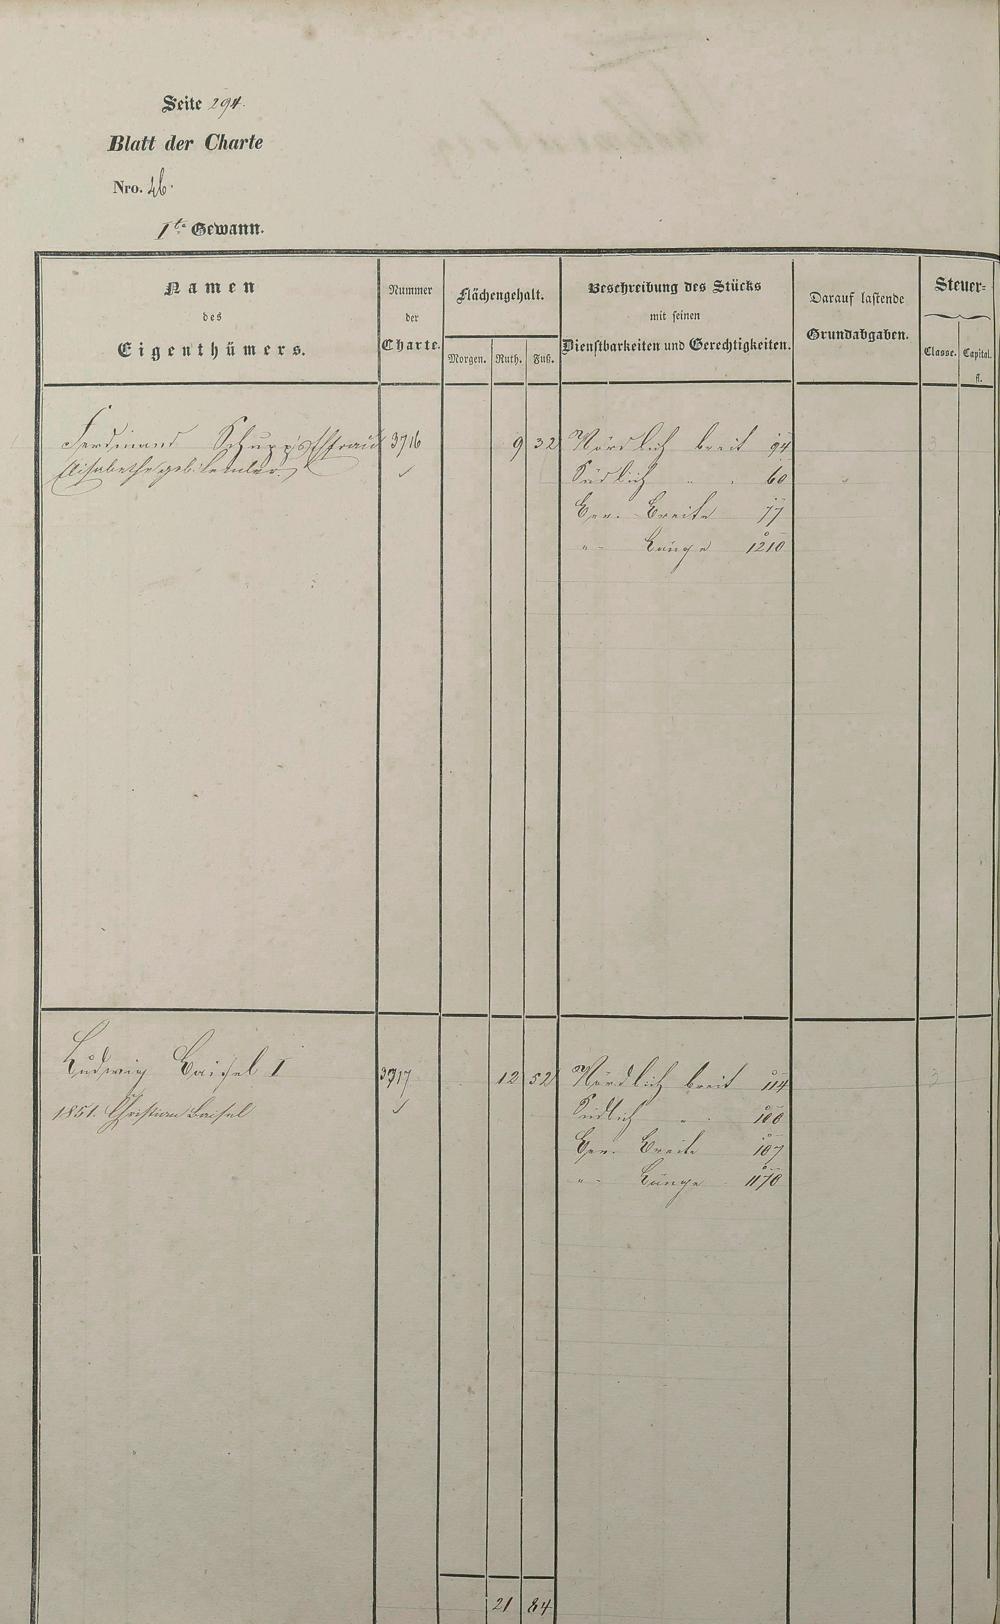 Seite 294.
Blatt der Charte
Nro. 46.
1te Gewann.
Namen
des
Eigenthümers.
Nummer
der
Charte.
Flächengehalt.
Morgen. Ruth. Fuß.
Beschreibung des Stücks
mit seinen
Dienstbarkeiten und Gerechtigkeiten.
Darauf lastende
Grundabgaben.
Steuer-
Classe. Capital.
fl.
Ferdinand Schupp's Ehefrau 3716 9 32 Nördlich breit 94
Elisabetha geb. Südlich " . 60
Gew. Breite 77
" - Länge 1210
Ludwig Baisel I 3717 12 52 Nördlich breit 114
1851. Christian Baisel Südlich " 100
Gew. Breite 107
" - Länge 1170
21 84